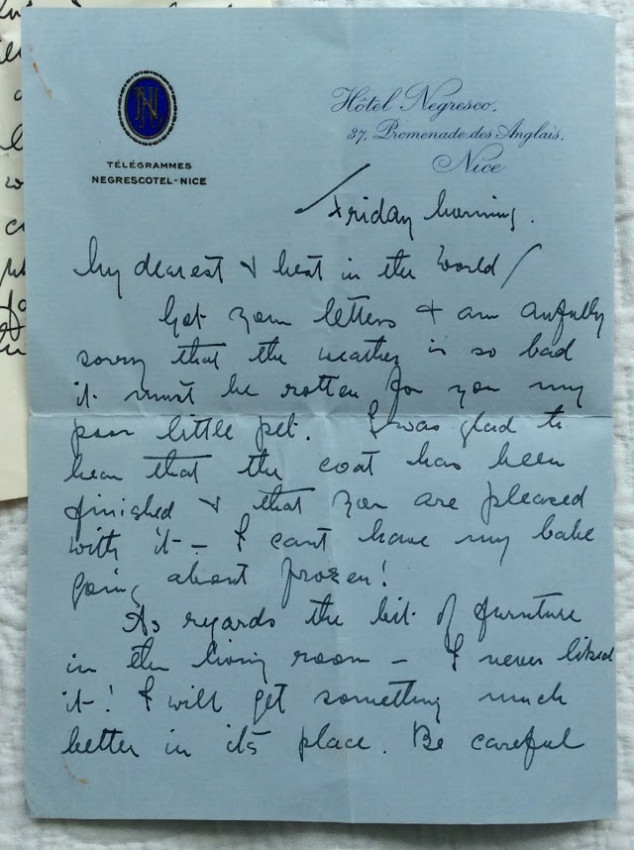 N
TÉLÉGRAMMES
NEGRESCOTEL-NICE
Hôtel Negresco.
37, Promenade des Anglais.
Nice
Friday morning.
My dearest & best in the World/
Got your letters & am awfully
sorry that the weather is so bad
it must be rotten for you my
poor little pet. I was glad to
hear that the coat has been
finished & that you are pleased
with it - I cant have my babe
going about frozen!
As regards the bit of furniture
in the living room - I never liked
it! I will get something much
better in its place. Be careful